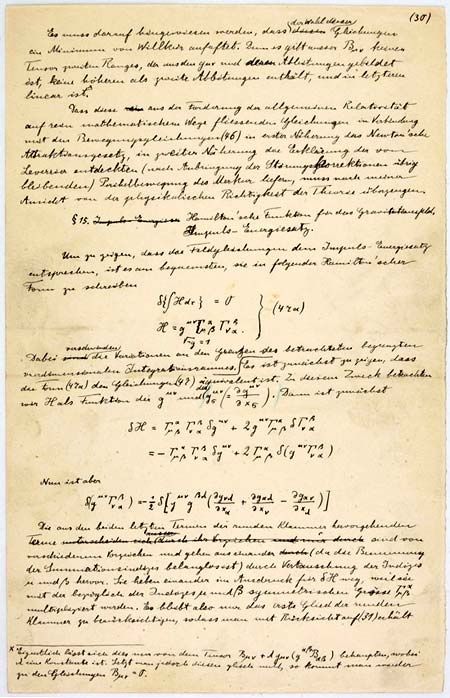 (30)
der Wahl dieser
Es muss darauf hingewiesen werden, dass diesen Gleichungen
ein Minimum von Willkür anhaftet. Denn es gibt ausser Bμν keinen
Tensor zweiten Ranges, der aus den gμν und deren Ableitungen gebildet
ist, keine höheren als zweite Ableitungen enthält, und in letzteren
linear ist.x
Dass diese aus der Forderung der allgemeinen Relativität
auf rein mathematischem Wege fliessenden Gleichungen in Verbindung
mit den Bewegungsgleichungen (46) in erster Näherung das Newton'sche
Attraktionsgesetz, in zweiter Näherung die Erklärung der von
Leverrier entdeckten (nach Anbringung der Störungskorrektionen übrig
bleibenden) Perihelbewegung des Merkur liefern, muss nach meiner
Ansicht von der physikalischen Richtigkeit der Theorie überzeugen.
§ 15. Impuls-Energiesa Hamilton'sche Funktion für das Gravitationsfeld,
Impuls-Energiesatz.
Um zu zeigen, dass die Feldgleichungen dem Impuls-Energiesatz
entsprechen, ist es am bequemsten, sie in folgender Hamilton'scher
Form zu schreiben
δ{∫H dτ} = 0
H = g^μν Γ^α_μβ Γ^β_να } (47a)
√-g = 1
verschwinden
Dabei sind die Variationen an den Grenzen des betrachteten begrenzten
vierdimensionalen Integrationsraumes. Es ist zunächst zu zeigen, dass
die Form (47a) den Gleichungen (47) äquivalent ist. Zu diesem Zweck betrachten
wir H als Funktion der g^μν und der g^μν_σ (= ∂g^μν/∂x_σ). Dann ist zunächst
δH = Γ^α_μβ Γ^β_να δg^μν + 2 g^μν Γ^α_μβ δΓ^β_να
= − Γ^α_μβ Γ^β_να δg^μν + 2 Γ^α_μβ δ(g^μν Γ^β_να)
Nun ist aber
δ(g^μν Γ^β_να) = −½ δ[g^μν g^βλ (∂g_νλ/∂x_α + ∂g_αλ/∂x_ν − ∂g_αν/∂x_λ)]
Die aus den beiden letzten Termen der runden Klammer hervorgehenden
Terme unterscheiden sich sind von
verschiedenem Vorzeichen und gehen auseinander durch (da die Benennung
der Summationsindizes belanglos ist) durch Vertauschung der Indizes
μ und β hervor. Sie heben einander im Ausdruck für δH weg, weil sie
mit der bezüglich der Indizes μ und β symmetrischen Grösse Γ^α_μβ
multipliziert werden. Es bleibt also nur das erste Glied der runden
Klammer zu berücksichtigen, sodass man mit Rücksicht auf (31) erhält
x Eigentlich lässt sich dies nur von dem Tensor Bμν + λ gμν (g^αβ Bαβ) behaupten, wobei
λ eine Konstante ist. Setzt man jedoch diesen gleich null, so kommt man wieder
zu den Gleichungen Bμν = 0.